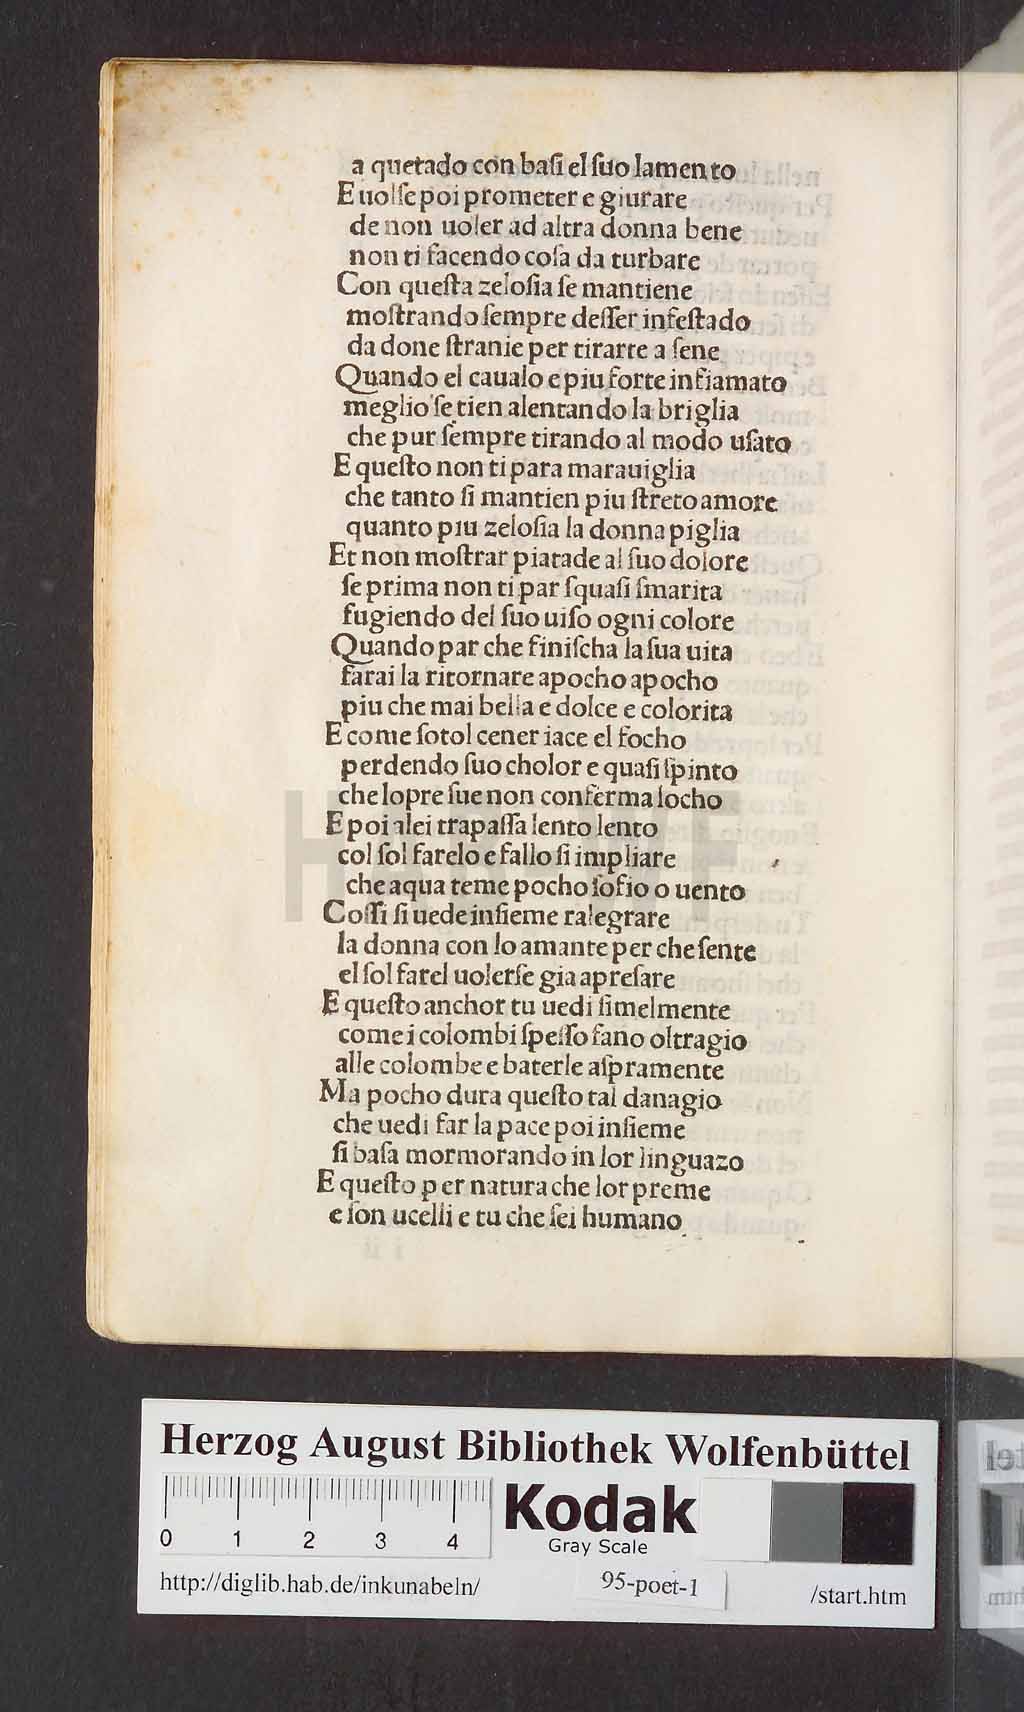 a quetado con baſi el ſuo lamento
E uolſe poi prometer e giurare
de non uoler ad altra donna bene
non ti facendo coſa da turbare
Con queſta zeloſia ſe mantiene
moſtrando ſempre deſſer infeſtado
da done ſtranie per tirarte a ſene
Quando el caualo e piu forte infiamato
meglio ſe tien alentando la briglia
che pur ſempre tirando al modo uſato
E queſto non ti para marauiglia
che tanto ſi mantien piu ſtreto amore
quanto piu zeloſia la donna piglia
Et non moſtrar piatade al ſuo dolore
ſe prima non ti par ſquaſi ſmarita
fugiendo del ſuo uiſo ogni colore
Quando par che finiſcha la ſua uita
farai la ritornare apocho apocho
piu che mai bella e dolce e colorita
E come ſotol cener iace el focho
perdendo ſuo cholor e quaſi ſpinto
che lopre ſue non conferma locho
E poi alei trapaſſa lento lento
col ſol farelo e fallo ſi impliare
che aqua teme pocho ſofio o uento
Coſſi ſi uede inſieme ralegrare
la donna con lo amante per che ſente
el ſol farel uolerſe gia apreſare
E queſto anchor tu uedi ſimelmente
come i colombi ſpeſſo fano oltragio
alle colombe e baterle aſpramente
Ma pocho dura queſto tal danagio
che uedi far la pace poi inſieme
ſi baſa mormorando in lor linguazo
E queſto per natura che lor preme
e ſon ucelli e tu che ſei humano
HAB-WF
Herzog August Bibliothek Wolfenbüttel
0 1 2 3 4
Kodak
Gray Scale
http://diglib.hab.de/inkunabeln/ 95-poet-1 /start.htm